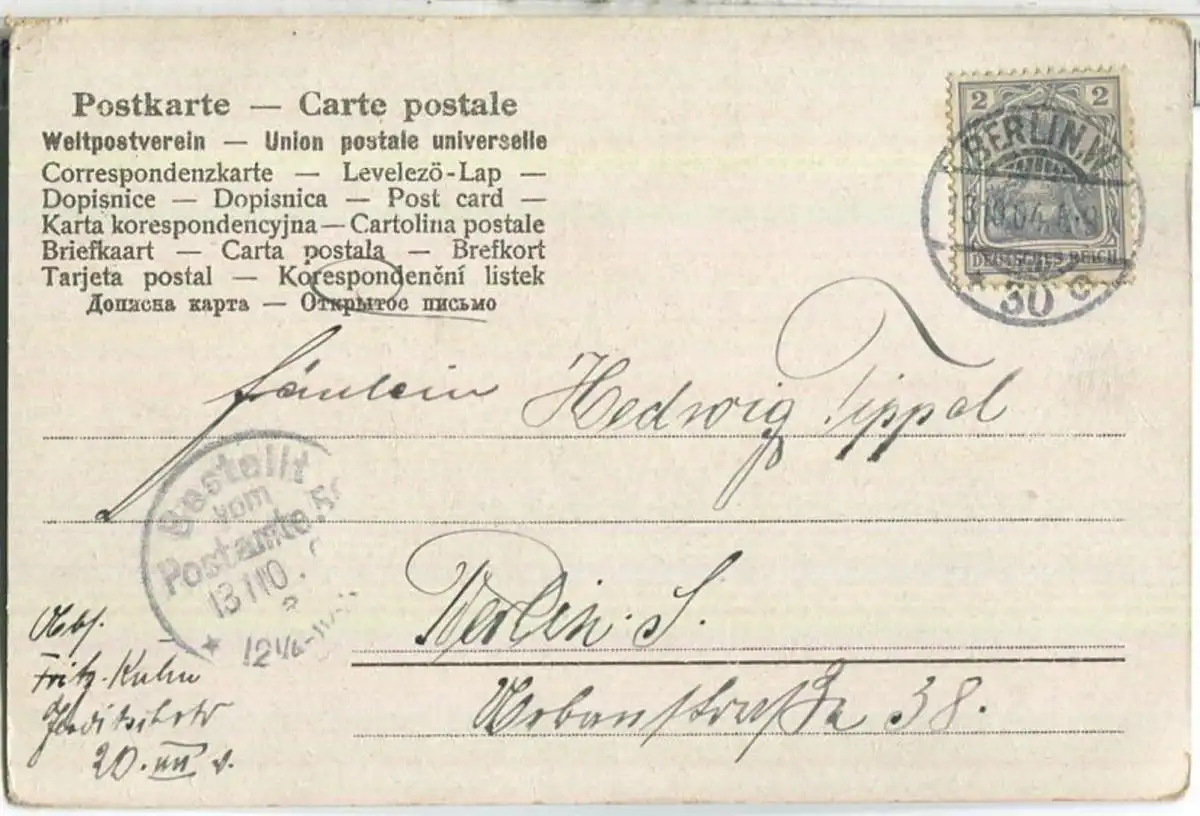 Postkarte — Carte postale
Weltpostverein — Union postale universelle
Correspondenzkarte — Levelezö-Lap —
Dopisnice — Dopisnica — Post card —
Karta korespondencyjna — Cartolina postale
Briefkaart — Carta postala — Brefkort
Tarjeta postal — Korespondenční listek
Дописна карта — Открытое письмо
2 2
BERLIN.W.
DEUTSCHES REICH
30 c
Fräulein Hedwig Tippel
Bestellt
vom
Postamte
Berlin. S.
Urbanstraße 38.
Abs.
Fritz Kuhn
20. III v.